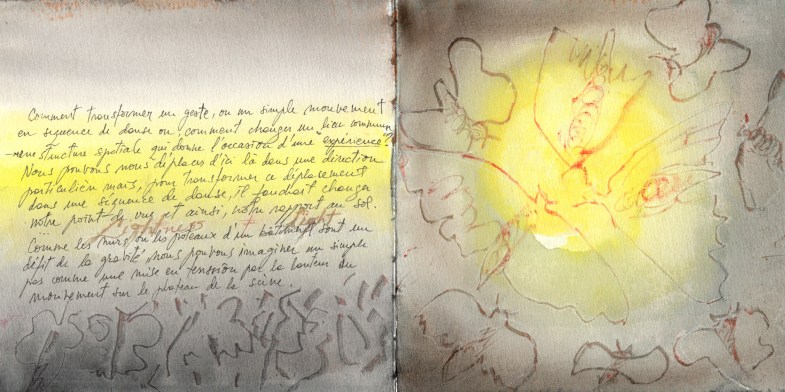 Comment transformer un geste, ou un simple mouvement
en séquence de danse ou, comment changer un lieu commun
une structure spatiale qui donne l'occasion d'une expérience?
Nous pouvons nous déplacer d'ici là dans une direction
particulière mais, pour transformer ce déplacement
dans une séquence de danse, il faudrait changer
notre point de vue et ainsi, notre rapport au sol.
Lightness light
Comme les murs ou les poteaux d'un bâtiment sont un
défit de la gravité, nous pouvons imaginer un simple
pas comme une mise en tension par la hauteur du
mouvement sur le plateau de la scène.